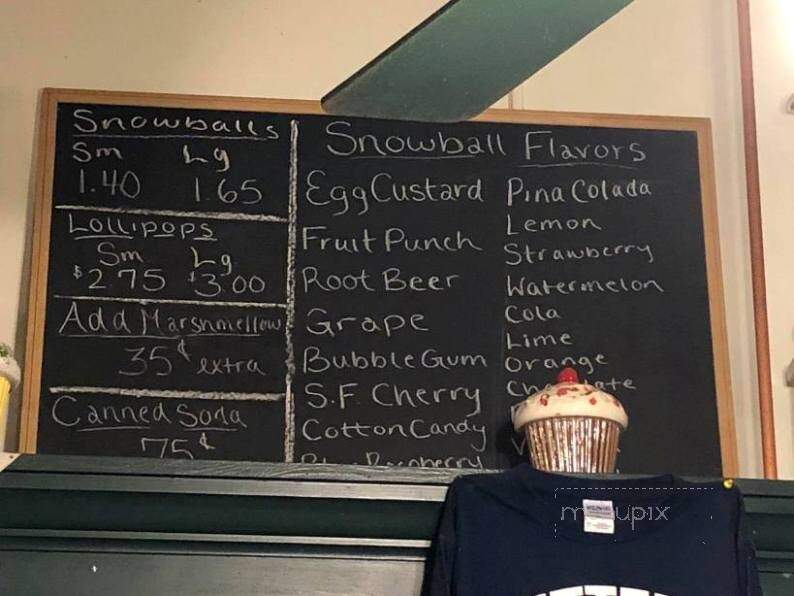 Snowballs
Sm Lg
1.40 1.65
Lollipops
Sm Lg
$2.75 $3.00
Add Marshmellow
35¢ extra
Canned Soda
75¢
Snowball Flavors
Egg Custard
Fruit Punch
Root Beer
Grape
Bubble Gum
S.F. Cherry
Cotton Candy
Blue Raspberry
Pina Colada
Lemon
Strawberry
Watermelon
Cola
Lime
Orange